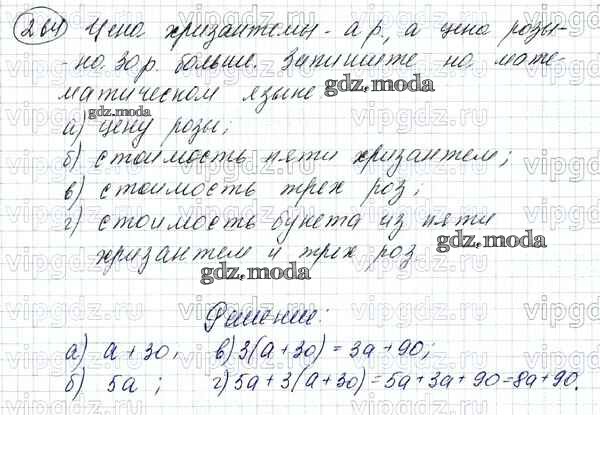 264 Цена хризантемы - а р., а цена розы -
- на 30 р. больше. Запишите на мате-
матическом языке
а) цену розы;
б) стоимость пяти хризантем;
в) стоимость трех роз;
г) стоимость букета из пяти
хризантем и трех роз
Решение:
а) а + 30; в) 3(а + 30) = 3а + 90;
б) 5а; г) 5а + 3(а + 30) = 5а + 3а + 90 = 8а + 90.
gdz.moda
gdz.moda
gdz.moda
gdz.moda
vipgdz.ru